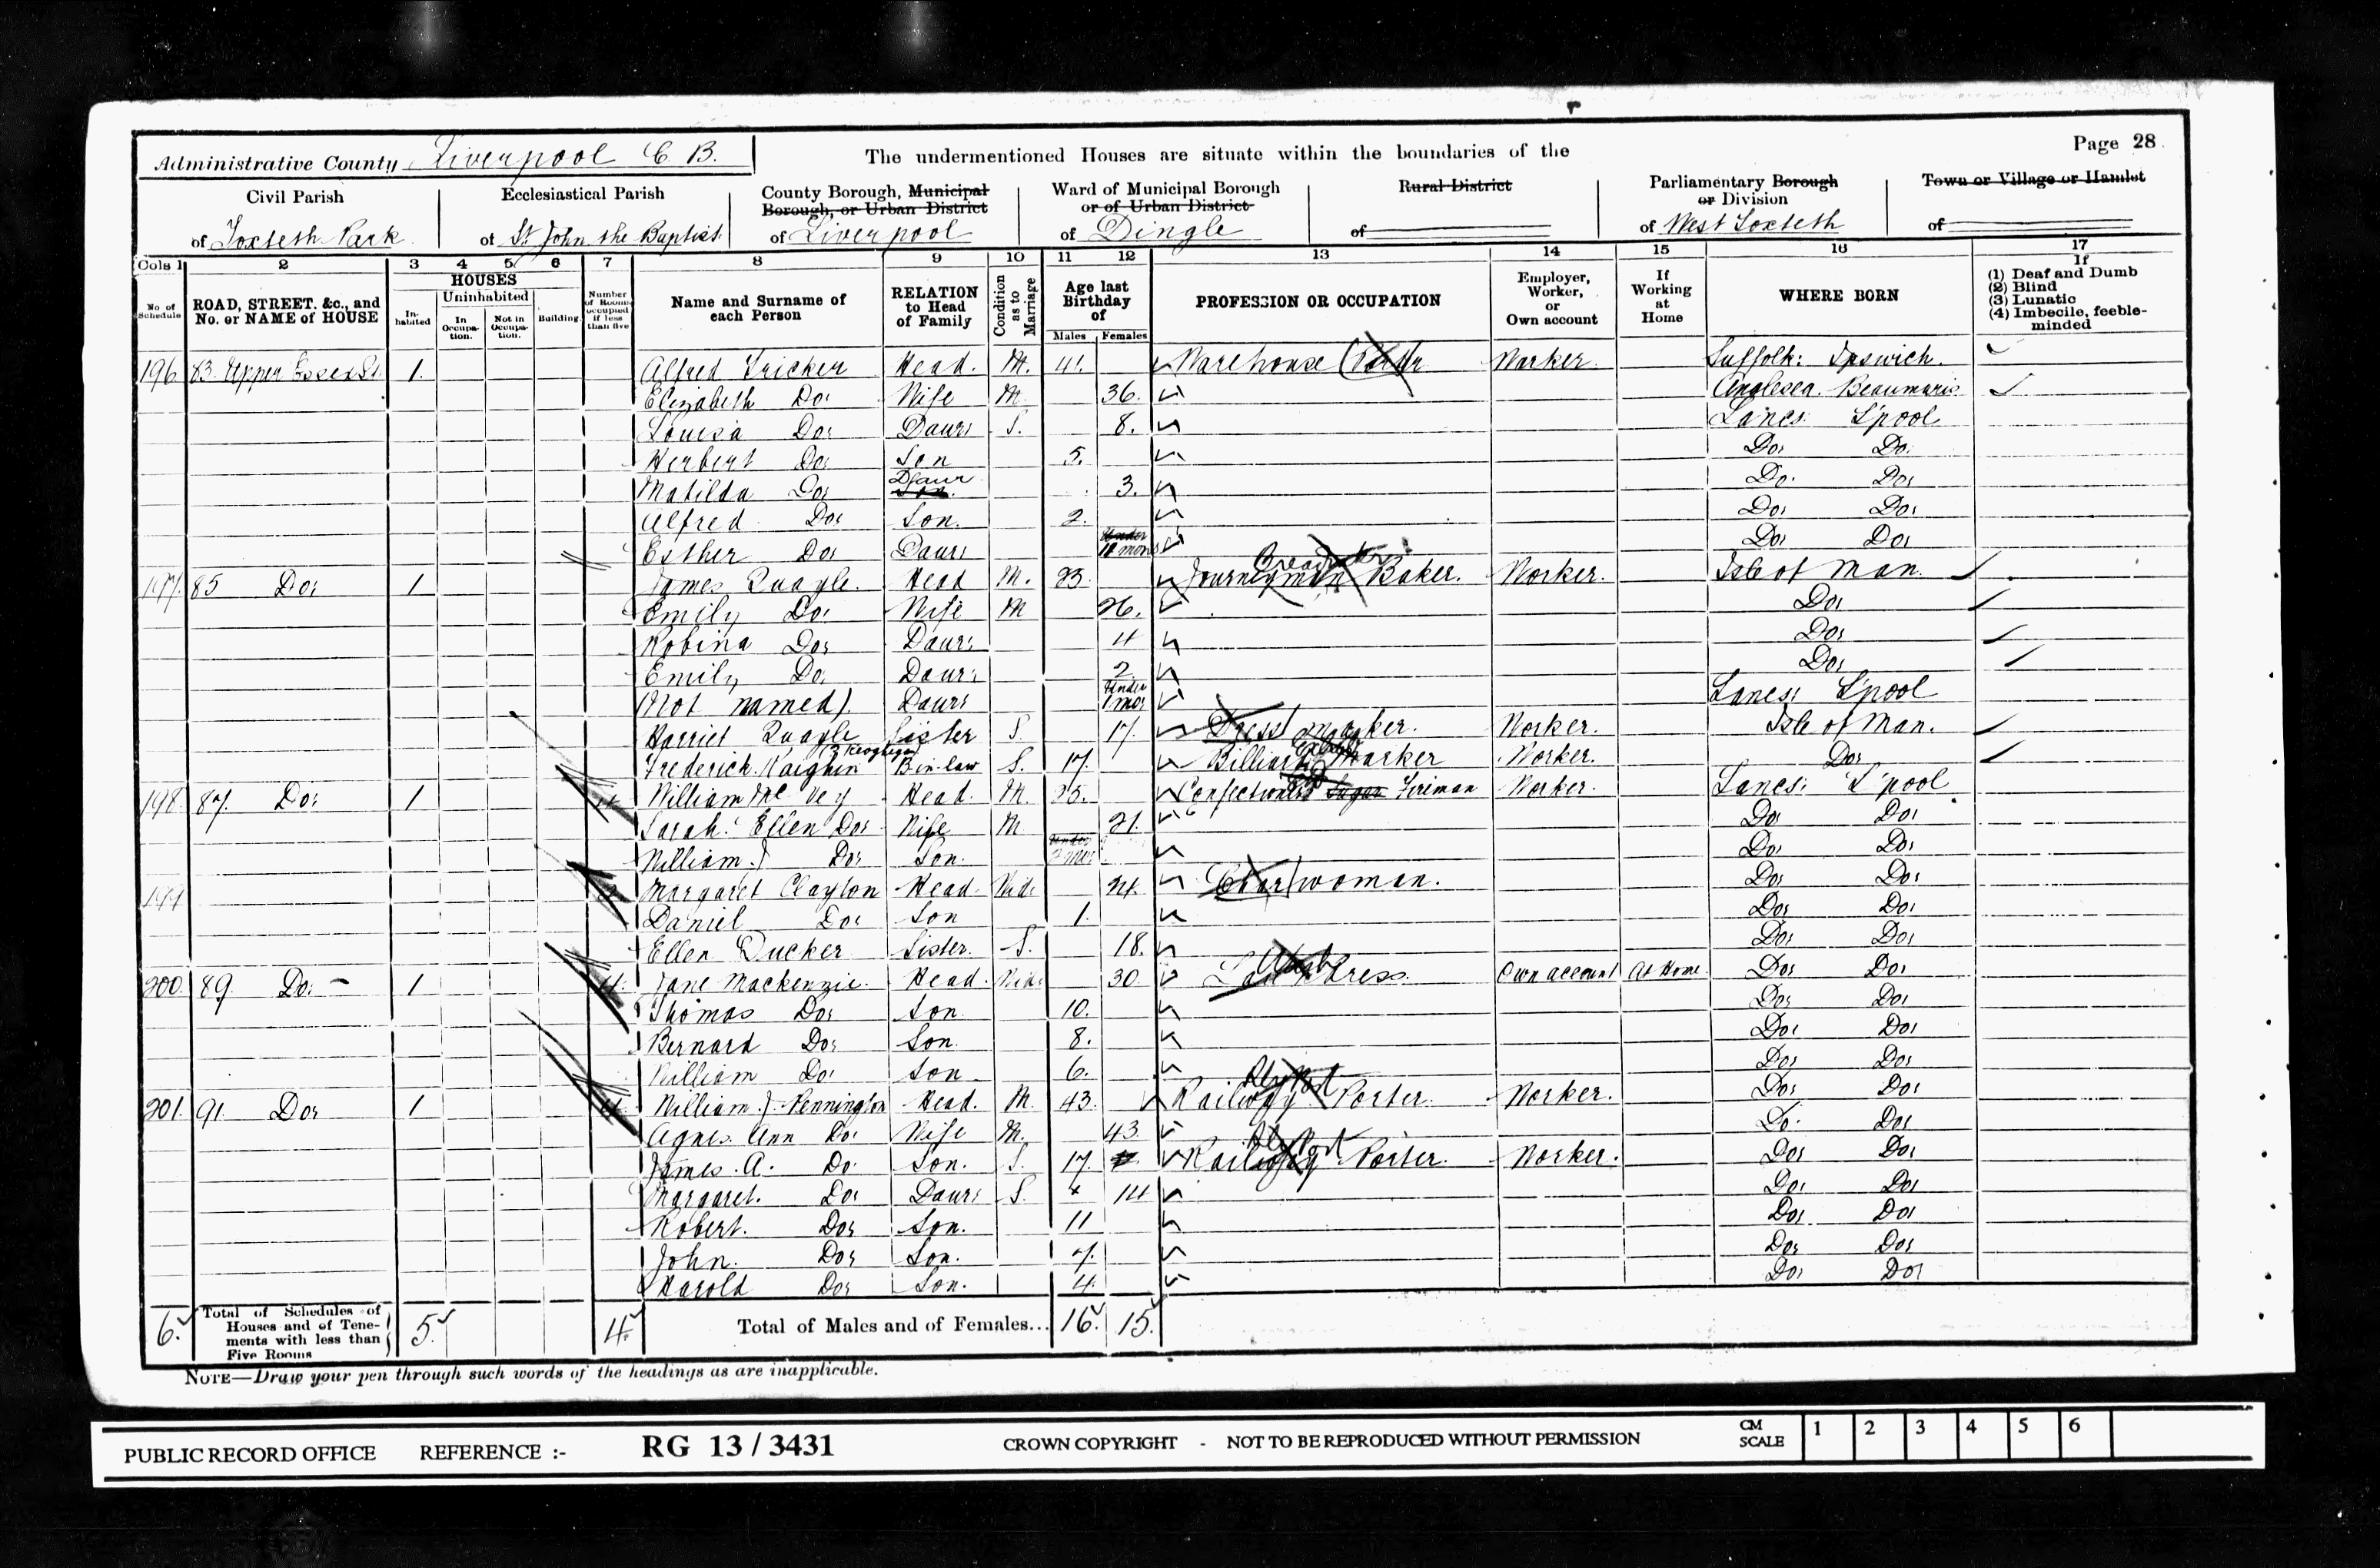 Page 28
Administrative County Liverpool C. B.
The undermentioned Houses are situate within the boundaries of the
Civil Parish
of Toxteth Park
Ecclesiastical Parish
of St John the Baptist
County Borough, Municipal Borough, or Urban District
of Liverpool
Ward of Municipal Borough or of Urban District
of Dingle
Rural District
of
Parliamentary Borough or Division
of West Toxteth
Town or Village or Hamlet
of
Cols 1 2 3 4 5 6 7 8 9 10 11 12 13 14 15 16 17
No. of Schedule
ROAD, STREET, &c., and No. or NAME of HOUSE
HOUSES
Inhabited
Uninhabited
In Occupation.
Not in Occupation.
Building.
Number of Rooms occupied if less than five
Name and Surname of each Person
RELATION to Head of Family
Condition as to Marriage
Age last Birthday of
Males Females
PROFESSION OR OCCUPATION
Employer, Worker, or Own account
If Working at Home
WHERE BORN
If
(1) Deaf and Dumb
(2) Blind
(3) Lunatic
(4) Imbecile, feeble-minded
196 83 Upper Essex St. 1. Alfred Tricker Head. M. 41. Warehouse Porter Worker. Suffolk: Ipswich.
Elizabeth Do: Wife M 36. Anglesea Beaumaris
Louisa Do: Daur: S. 8. Lancs: L'pool
Herbert Do: Son 5. Do: Do:
Matilda Do: Daur Son. 3. Do: Do:
Alfred Do: Son. 2. Do: Do:
Esther Do: Daur: Under 11 mons Do: Do:
197. 85 Do: 1 James Quayle. Head M. 23. Journeyman Baker. Worker. Isle of Man.
Emily Do: Wife M 26. Do:
Robina Do: Daur: 4 Do:
Emily Do: Daur: 2 Do:
(Not named) Daur: Under 1 mos Lancs: L'pool
Harriet Quayle Sister S. 17. Dress maker. Worker. Isle of Man.
Frederick B-in-law S. 17. Billiard Marker Worker. Do:
198. 87. Do: 1 William Mc Vey Head. M. 25. Fireman Worker. Lancs: L'pool
Sarah Ellen Do: Wife M 21. Do: Do:
William J Do: Son. Under Do: Do:
199 Margaret Clayton Head. Wid: 24. Charwoman. Do: Do:
Daniel Do: Son 1. Do: Do:
Ellen Ducker Sister. S. 18. Do: Do:
200. 89 Do: 1 4. Jane Mackenzie. Head. Wid: 30. Laundress. Own account At Home. Do: Do:
Thomas Do: Son 10. Do: Do:
Bernard Do: Son. 8. Do: Do:
William Do: Son 6. Do: Do:
201. 91 Do: 1 4 William J. Pennington Head. M. 43. Railway Porter. Worker. Do: Do:
Agnes Ann Do: Wife M. 43 Do: Do:
James A. Do: Son. S. 17 Railway Porter. Worker. Do: Do:
Margaret. Do: Daur: S. 14 Do: Do:
Robert. Do: Son. 11 Do: Do:
John. Do: Son. 7. Do: Do:
Harold Do: Son. 4. Do: Do:
6. Total of Schedules of Houses and of Tenements with less than Five Rooms 5. 4. Total of Males and of Females... 16. 15.
NOTE—Draw your pen through such words of the headings as are inapplicable.
PUBLIC RECORD OFFICE REFERENCE :- RG 13 / 3431 CROWN COPYRIGHT - NOT TO BE REPRODUCED WITHOUT PERMISSION
CM SCALE 1 2 3 4 5 6